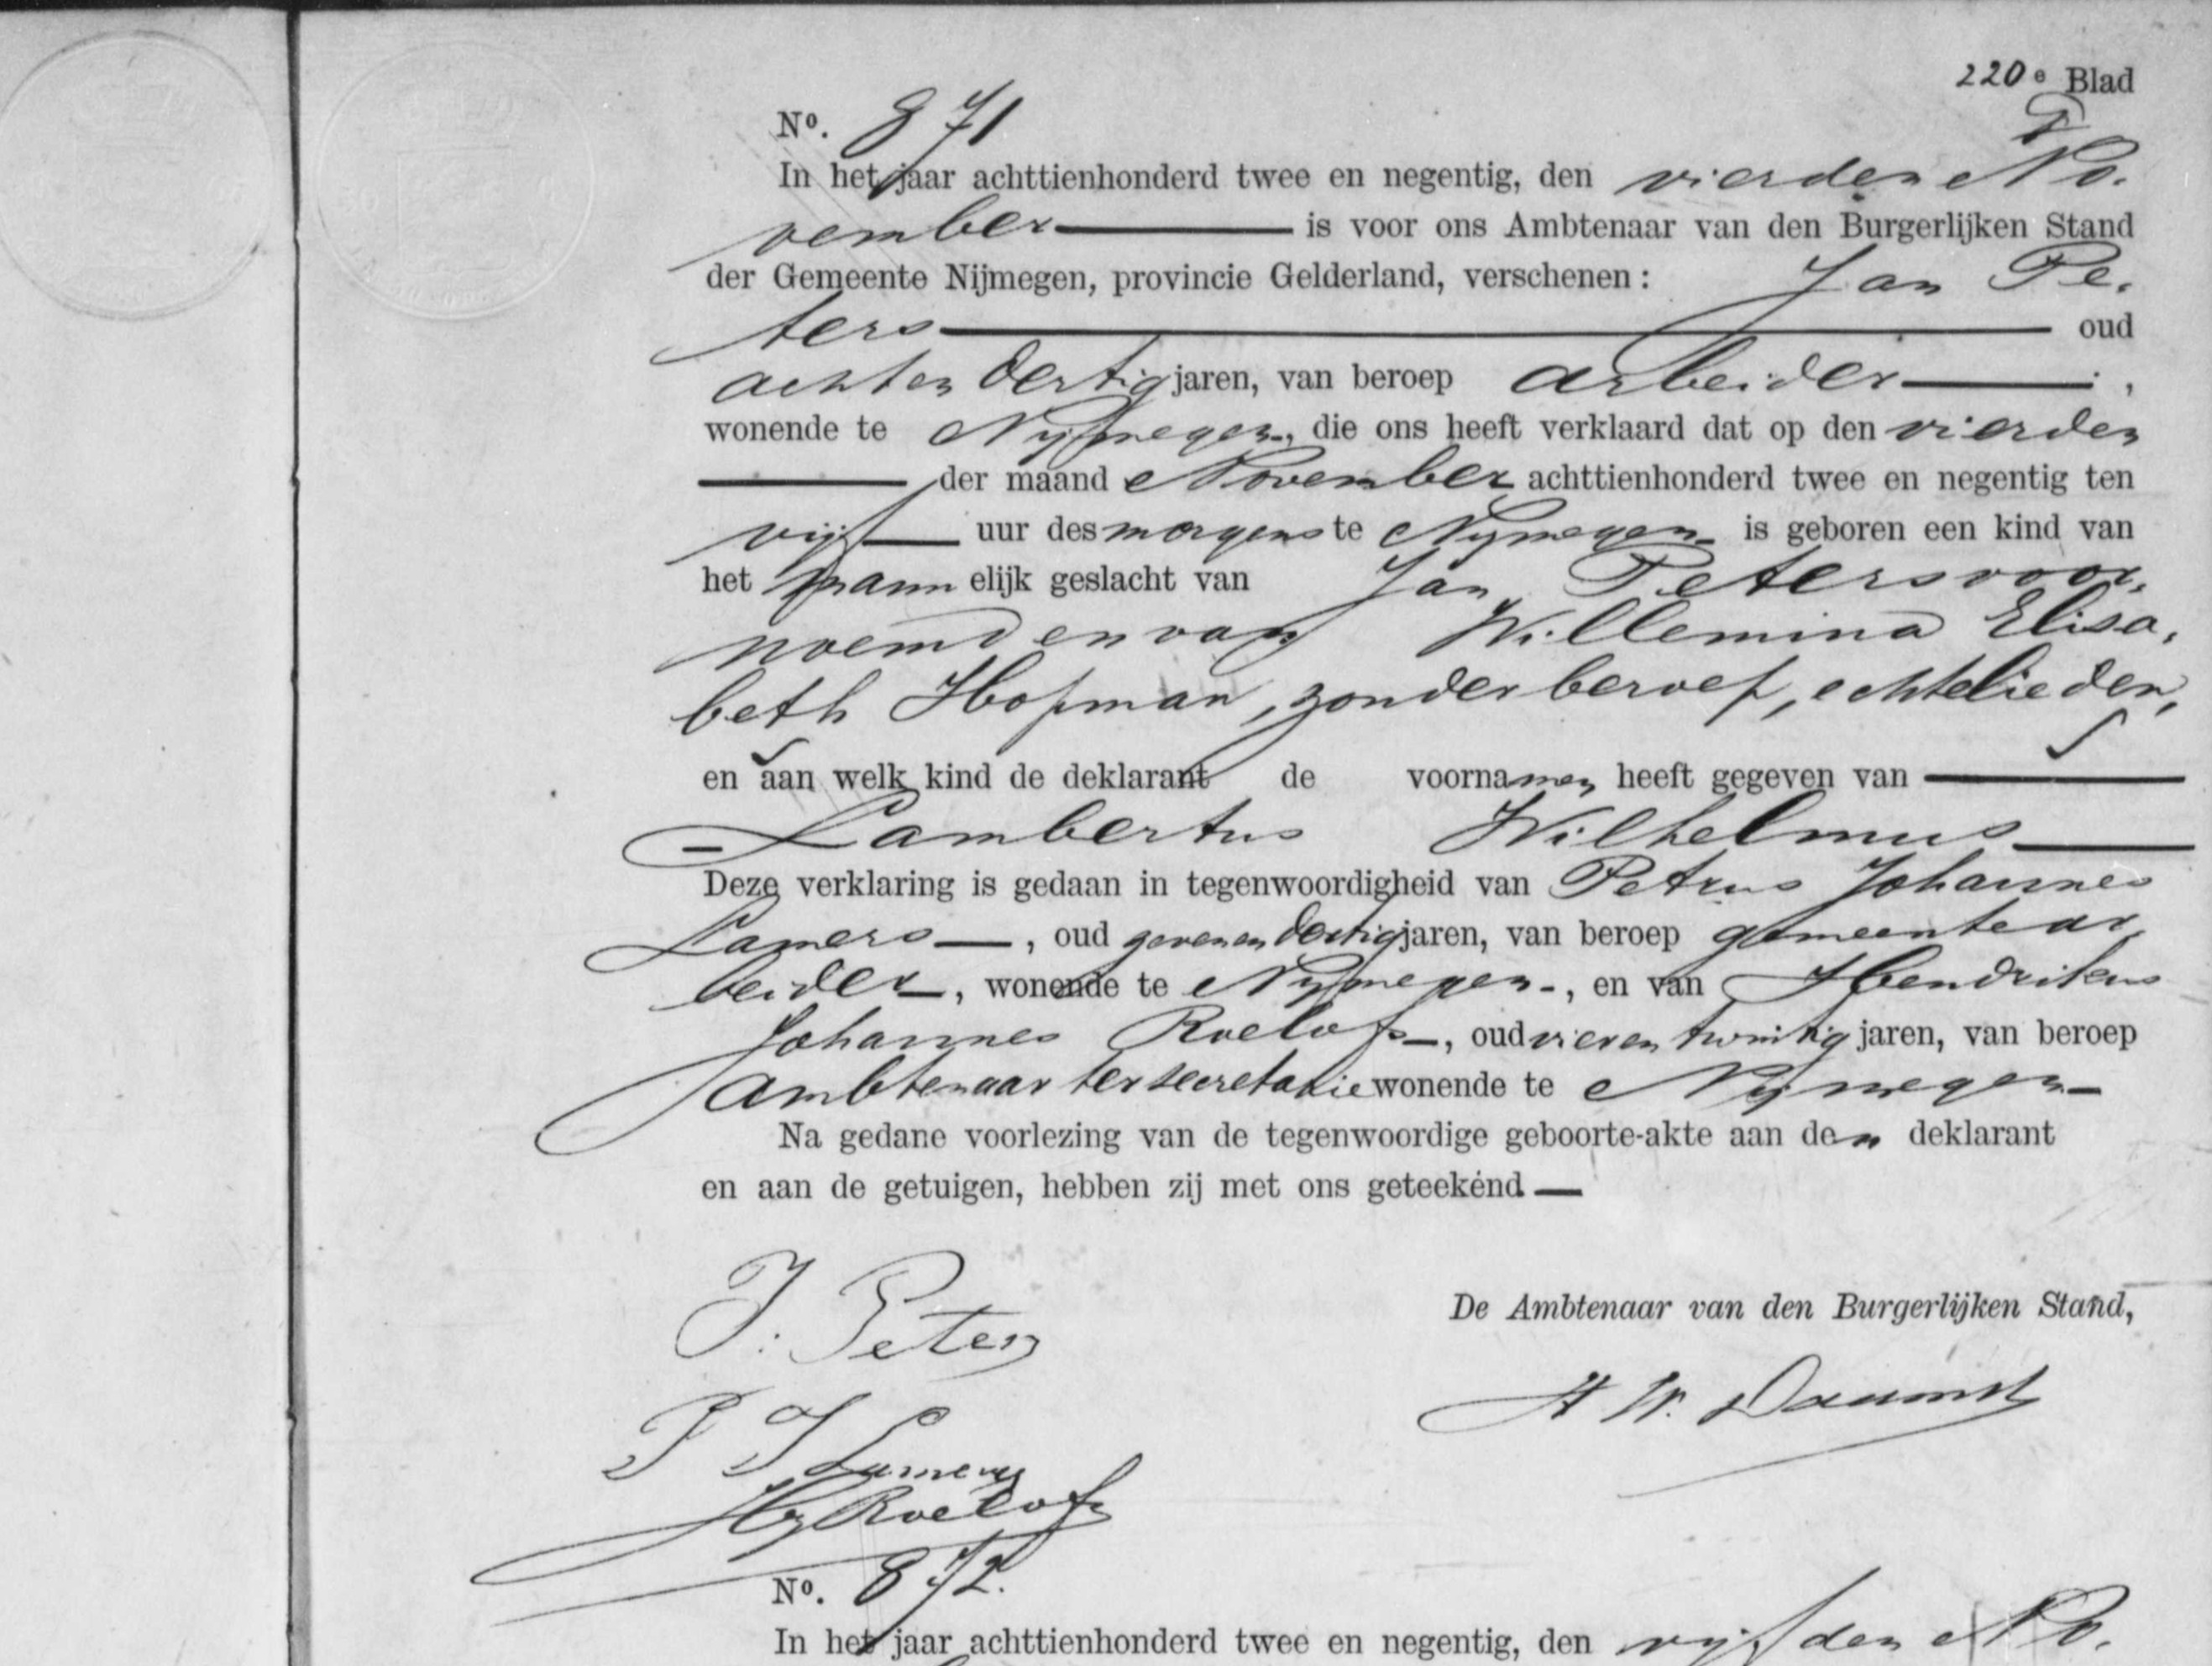 220e Blad
No. 871
In het jaar achttienhonderd twee en negentig, den vierden No-
vember is voor ons Ambtenaar van den Burgerlijken Stand
der Gemeente Nijmegen, provincie Gelderland, verschenen: Jan Pe-
ters oud
acht en dertig jaren, van beroep arbeider,
wonende te Nijmegen, die ons heeft verklaard dat op den vierden
der maand November achttienhonderd twee en negentig ten
vijf uur des morgens te Nijmegen is geboren een kind van
het mannelijk geslacht van Jan Peters voor-
noemd en van Willemina Elisa-
beth Hofman, zonder beroep, echtelieden,
en aan welk kind de deklarant de voornamen heeft gegeven van
Lambertus Wilhelmus
Deze verklaring is gedaan in tegenwoordigheid van Petrus Johannes
Lamers, oud zeven en dertig jaren, van beroep gemeentear-
beider, wonende te Nijmegen, en van Hendrikus
Johannes Roelofs, oud vier en twintig jaren, van beroep
ambtenaar ter secretarie wonende te Nijmegen
Na gedane voorlezing van de tegenwoordige geboorte-akte aan den deklarant
en aan de getuigen, hebben zij met ons geteekend
J. Peters
De Ambtenaar van den Burgerlijken Stand,
P J Lamers
HJ Roelofs
No. 872.
In het jaar achttienhonderd twee en negentig, den vijfden No-